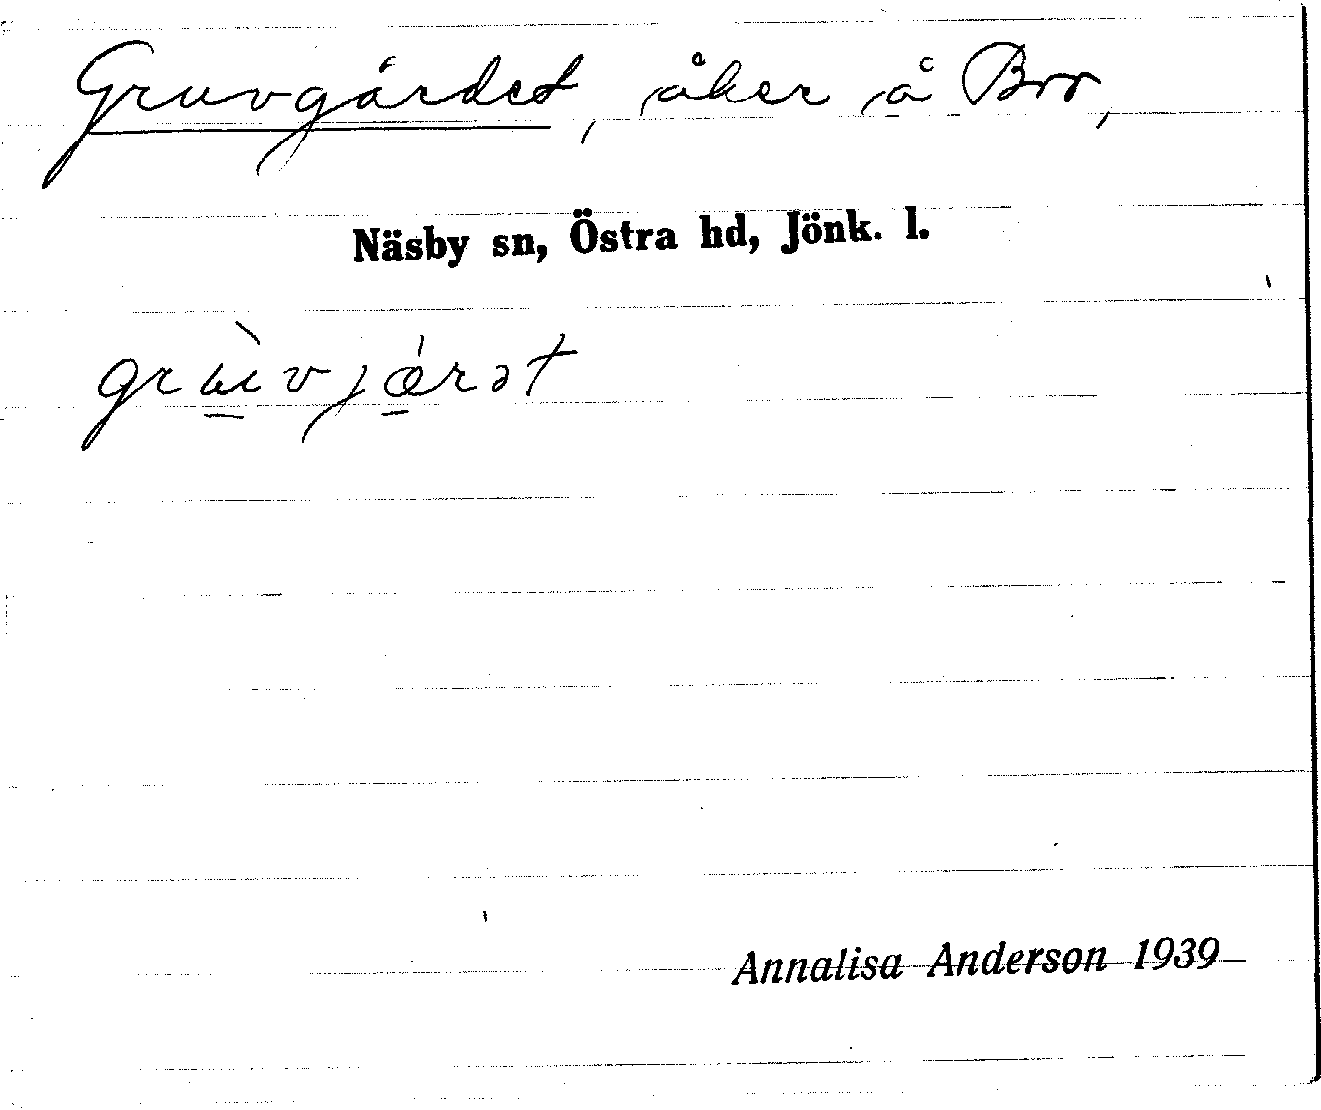 Gruvgärdet, åker å Bro,
Näsby sn, Östra hd, Jönk. l.
grùvjǽrət
Annalisa Anderson 1939